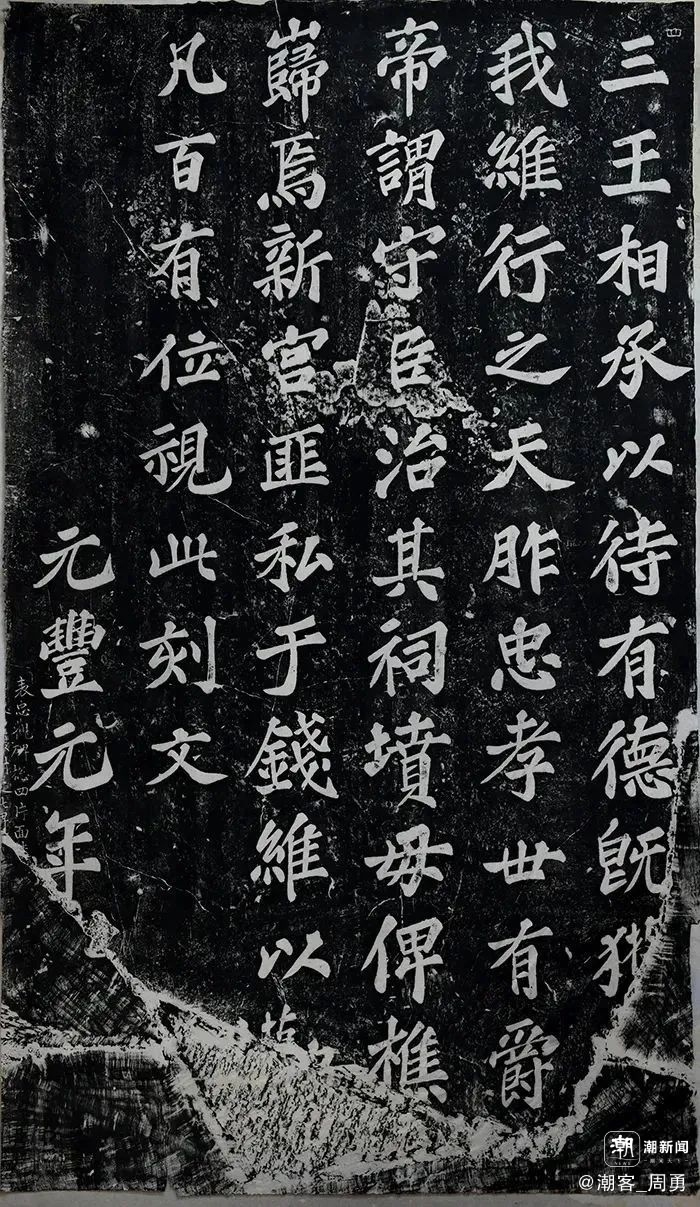 三王相承以待有德既獲
我維行之天胙忠孝世有爵
帝謂守臣治其祠墳毋俾樵
巋焉新宮匪私于錢維以
凡百有位視此刻文
元豐元年
四
潮新闻
@潮客_周勇